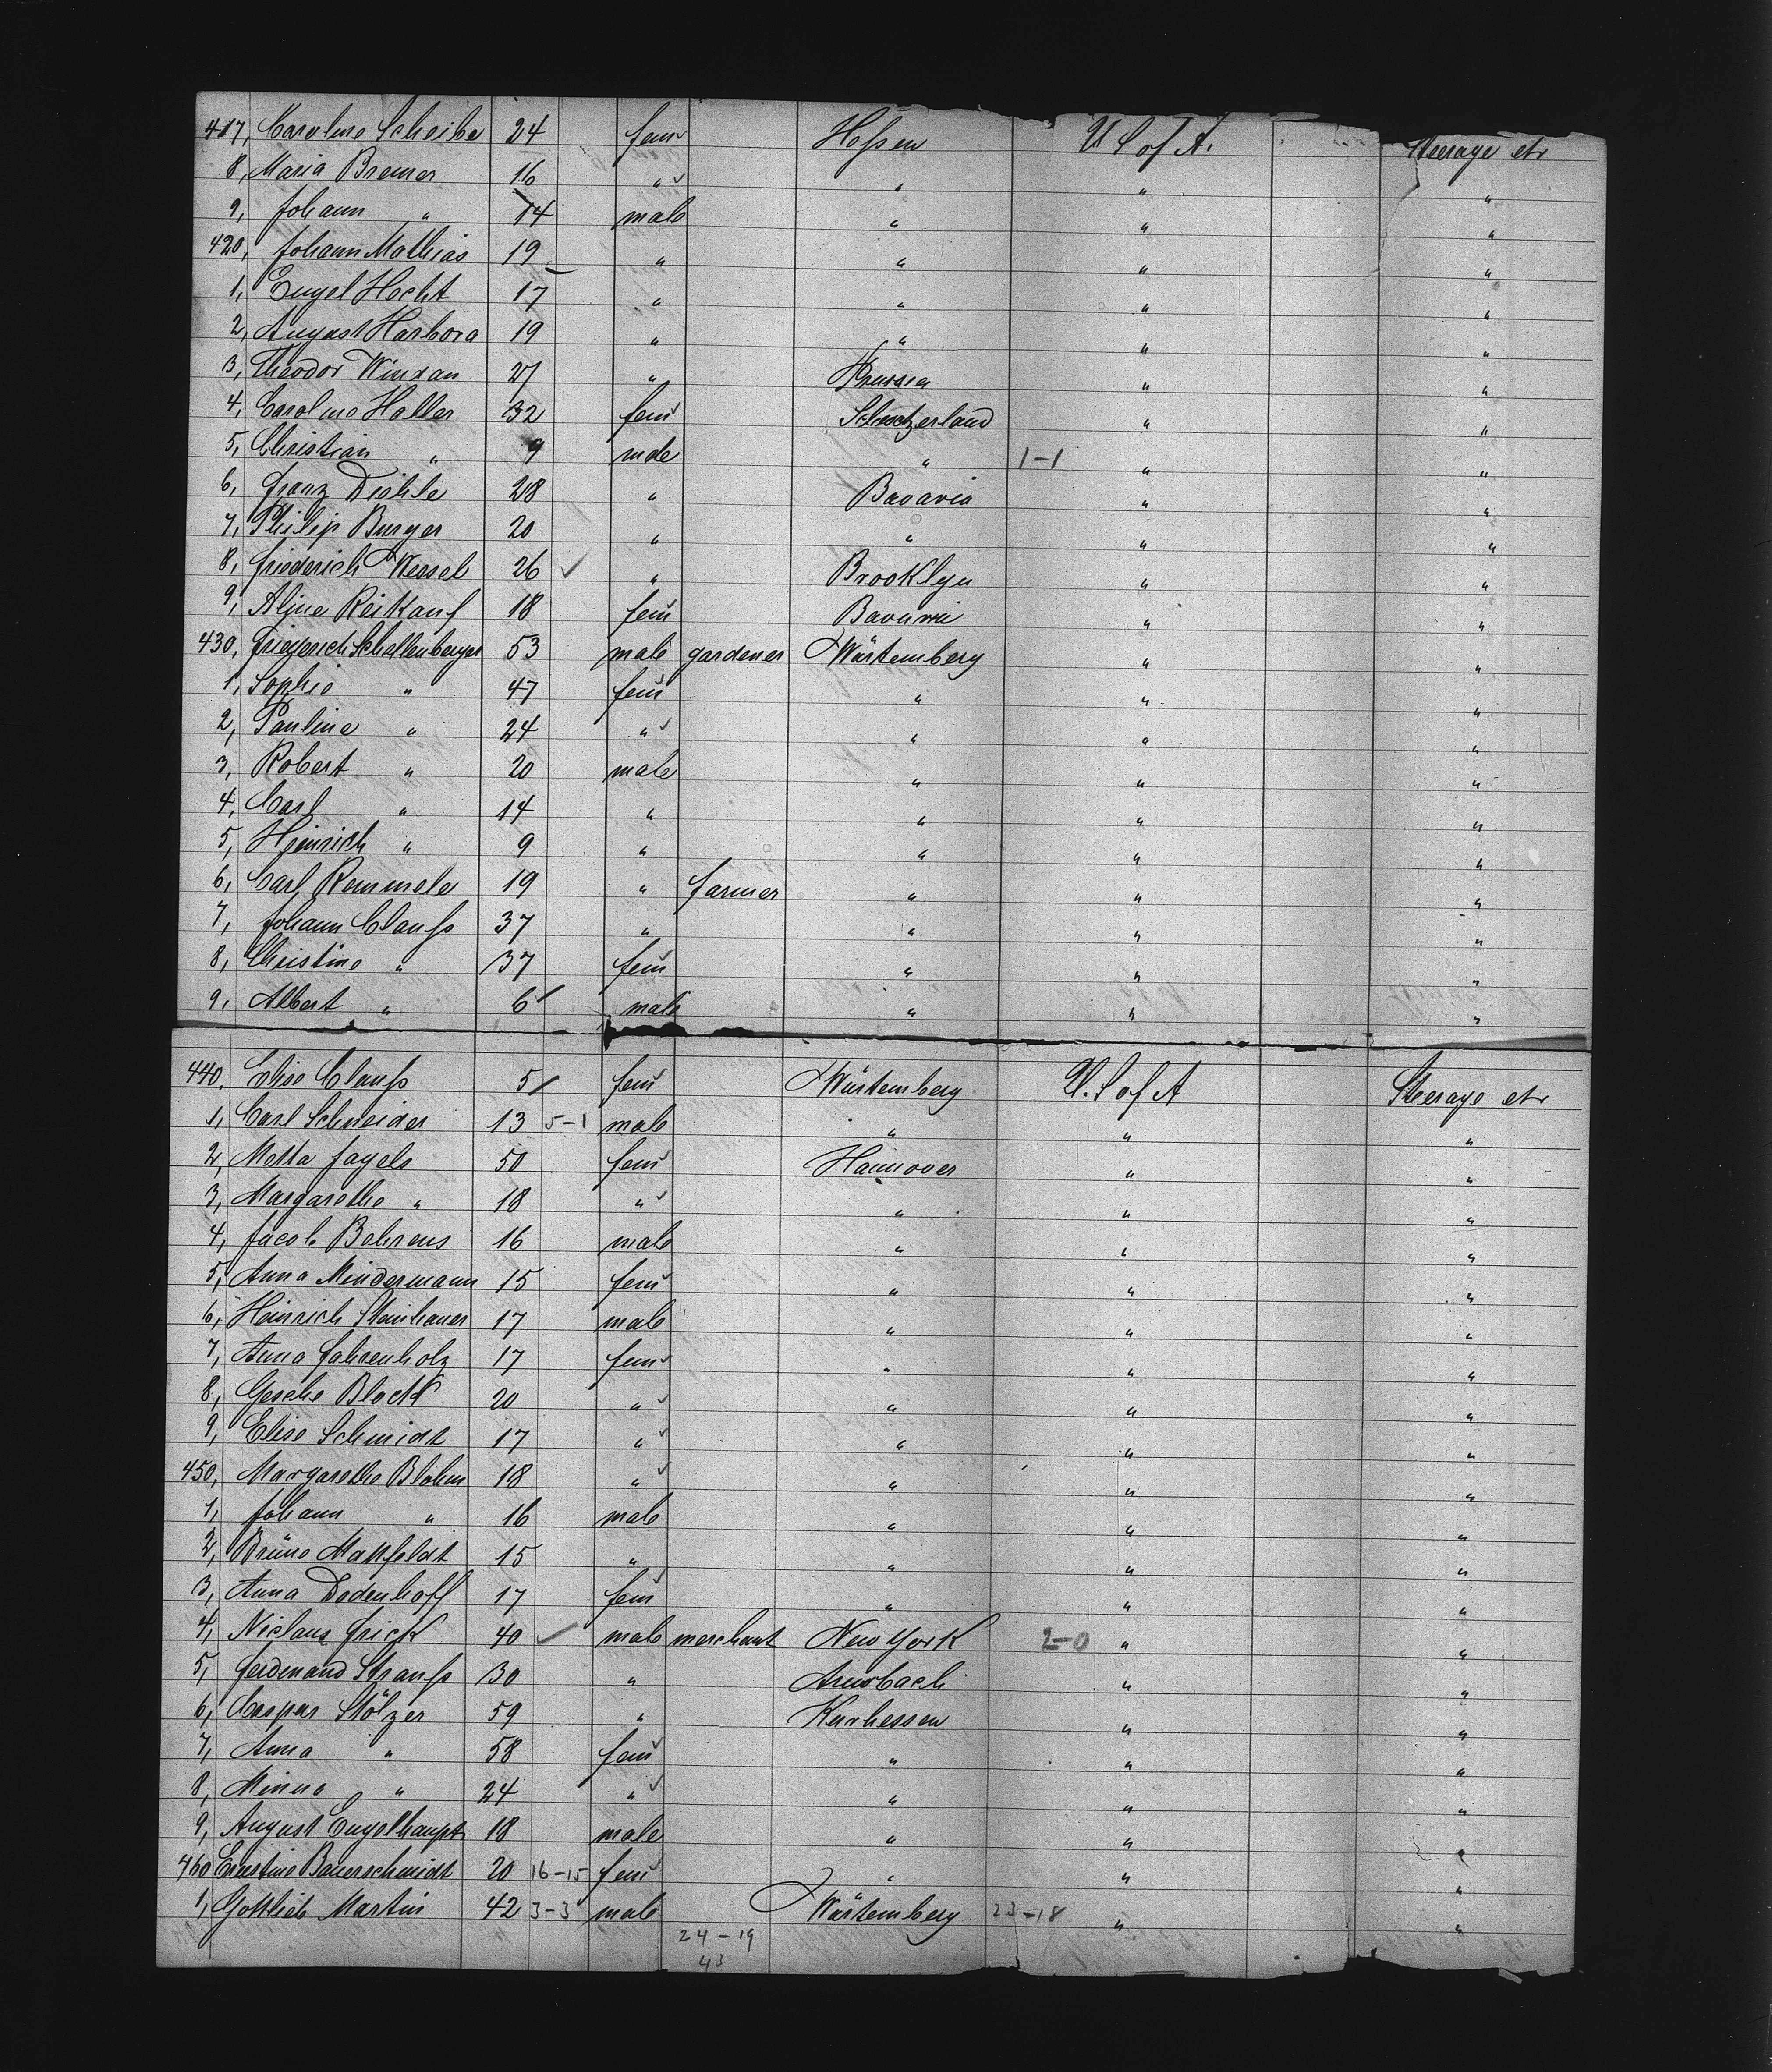 417, Caroline Scheibe 24 fem Heſsen U S of A. Steerage etr
8, Maria Bremer 16 " " " "
9, Johann " 14 male " " "
420, Johann Mathias 19 " " " "
1, Engel Hecht 17 " " " "
2, August Harbora 19 " " " "
3, Theodor 27 " Prussia " "
4, Caroline Haller 32 fem Schwetzerland " "
5, Christian " 9 male " 1-1 " "
6, Franz Diehle 28 " Bavaria " "
7, Philip Burger 20 " " " "
8, Friederich Wessel 26 ✓ " Brooklyn " "
9, Aline Reikauf 18 fem Bavaria " "
430, Friederich Schallenberger 53 male gardener Würtemberg " "
1, Sophie " 47 fem " " "
2, Pauline " 24 " " " "
3, Robert " 20 male " " "
4, Carl " 14 " " " "
5, Heinrich " 9 " " " "
6, Carl Remmele 19 " farmer " " "
7, Johann Clauſs 37 " " " "
8, Christine " 37 fem " " "
9, Albert " 6 male " " "
440, Elise Clauſs 5 fem Würtemberg U. S of A Steerage etr
1, Carl Schneider 13 5-1 male " " "
2, Metta Jagels 50 fem Hannover " "
3, Margarethe " 18 " " " "
4, Jacob Behrens 16 male " " "
5, Anna Mindermann 15 fem " " "
6, Heinrich Steinhauer 17 male " " "
7, Anna Fahrenholz 17 fem " " "
8, Gesche Block 20 " " " "
9, Elise Schmidt 17 " " " "
450, Margarethe Blohm 18 " " " "
1, Johann " 16 male " " "
2, Brüne Mattfeldt 15 " " " "
3, Anna Dodenhoff 17 fem " " "
4, Niclaus Frick 40 ✓ male merchant New York 2-0 " "
5, Ferdinand Strauſs 30 " " "
6, Caspar Stölzer 59 " Kurhessen " "
7, Anna " 58 fem " " "
8, Minna " 24 " " " "
9, August Engelhaupt 18 male " " "
460 Ernstine Bauerschmidt 20 16-15 fem " " "
1, Gottlieb Martin 42 3-3 male Würtemberg 23-18 " "
24-19
43